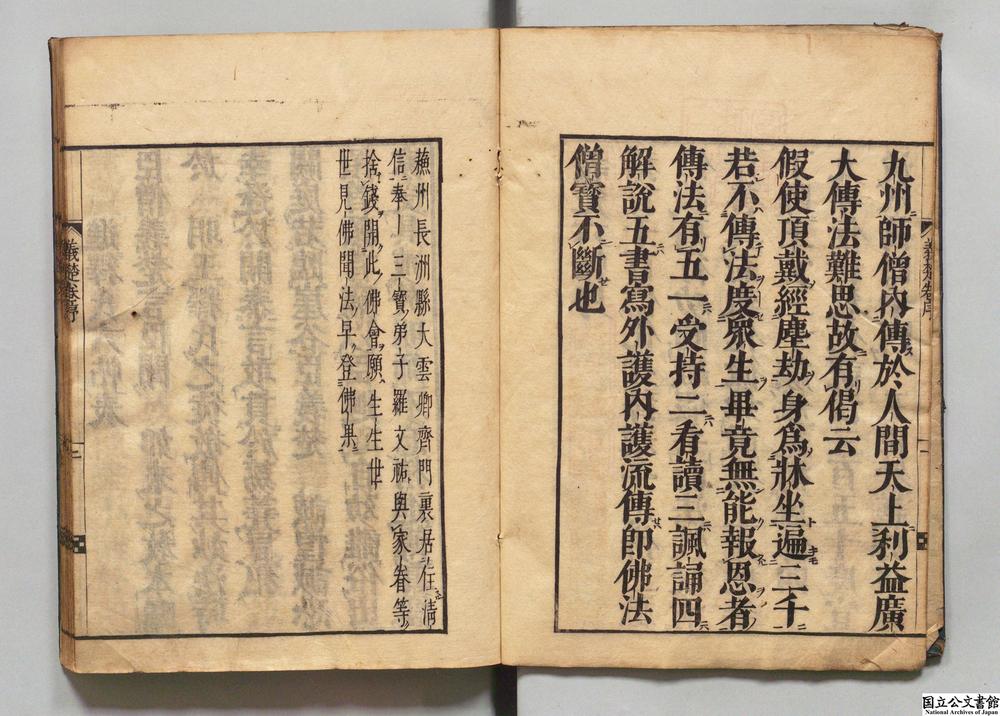 九州師僧內傳於人間天上利益廣
大傳法難思故有偈云
假使頂戴經塵劫身爲牀坐遍三千
若不傳法度衆生畢竟無能報恩者
傳法有五一受持二看讀三諷誦四
解說五書寫外護內護流傳即佛法
僧寶不斷也
蘓州長洲縣大雲鄉齊門裏居住清
信奉三寶弟子羅文祐與家眷等
捨錢開此佛會願生生世
世見佛聞法早登佛果
義楚卷序
義楚卷序
国立公文書館
National Archives of Japan